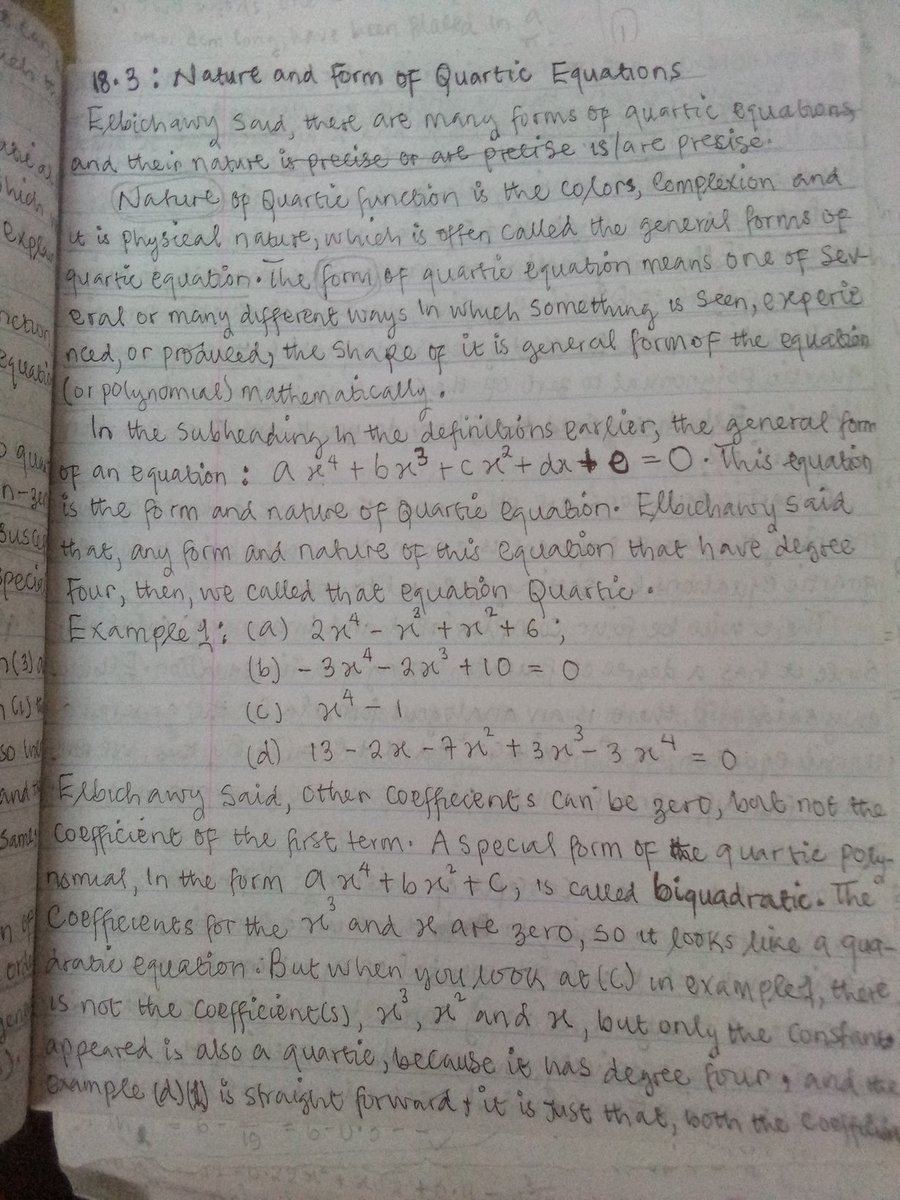 18.3: Nature and Form of Quartic Equations
Elbichawy said, there are many forms of quartic equations
and their nature is precise or are precise is/are presise.
Nature of Quartic function is the colors, complexion and
it is physical nature, which is often called the general forms of
quartic equation. The form of quartic equation means one of sev-
eral or many different ways in which something is seen, experie
nced, or produced, the shape of it is general form of the equation
(or polynomial) mathematically.
In the subheading in the definitions earlier, the general form
of an equation: ax⁴ + bx³ + cx² + dx + e = 0. This equation
is the form and nature of Quartic equation. Elbichawy said
that, any form and nature of this equation that have degree
Four, then, we called that equation Quartic.
Example 1: (a) 2x⁴ - x³ + x² + 6;
(b) -3x⁴ - 2x³ + 10 = 0
(c) x⁴ - 1
(d) 13 - 2x - 7x² + 3x³ - 3x⁴ = 0
Elbichawy said, other coeffiecents can be zero, but not the
coefficient of the first term. A special form of the quartic poly-
nomial, in the form ax⁴ + bx² + c, is called biquadratic. The
Coeffiecents for the x³ and x are zero, so it looks like a qua-
dratic equation. But when you look at (c) in example 1, there
is not the coefficient(s), x³, x² and x, but only the constant
appeared is also a quartic, because it has degree four, and the
example (d)(1) is straight forward, it is just that, both the